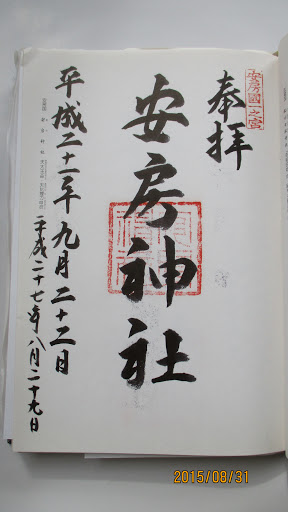 安房國一之宮
奉拝
安房神社
平成二十一年九月二十二日
平成二十七年八月二十九日
2015/08/31